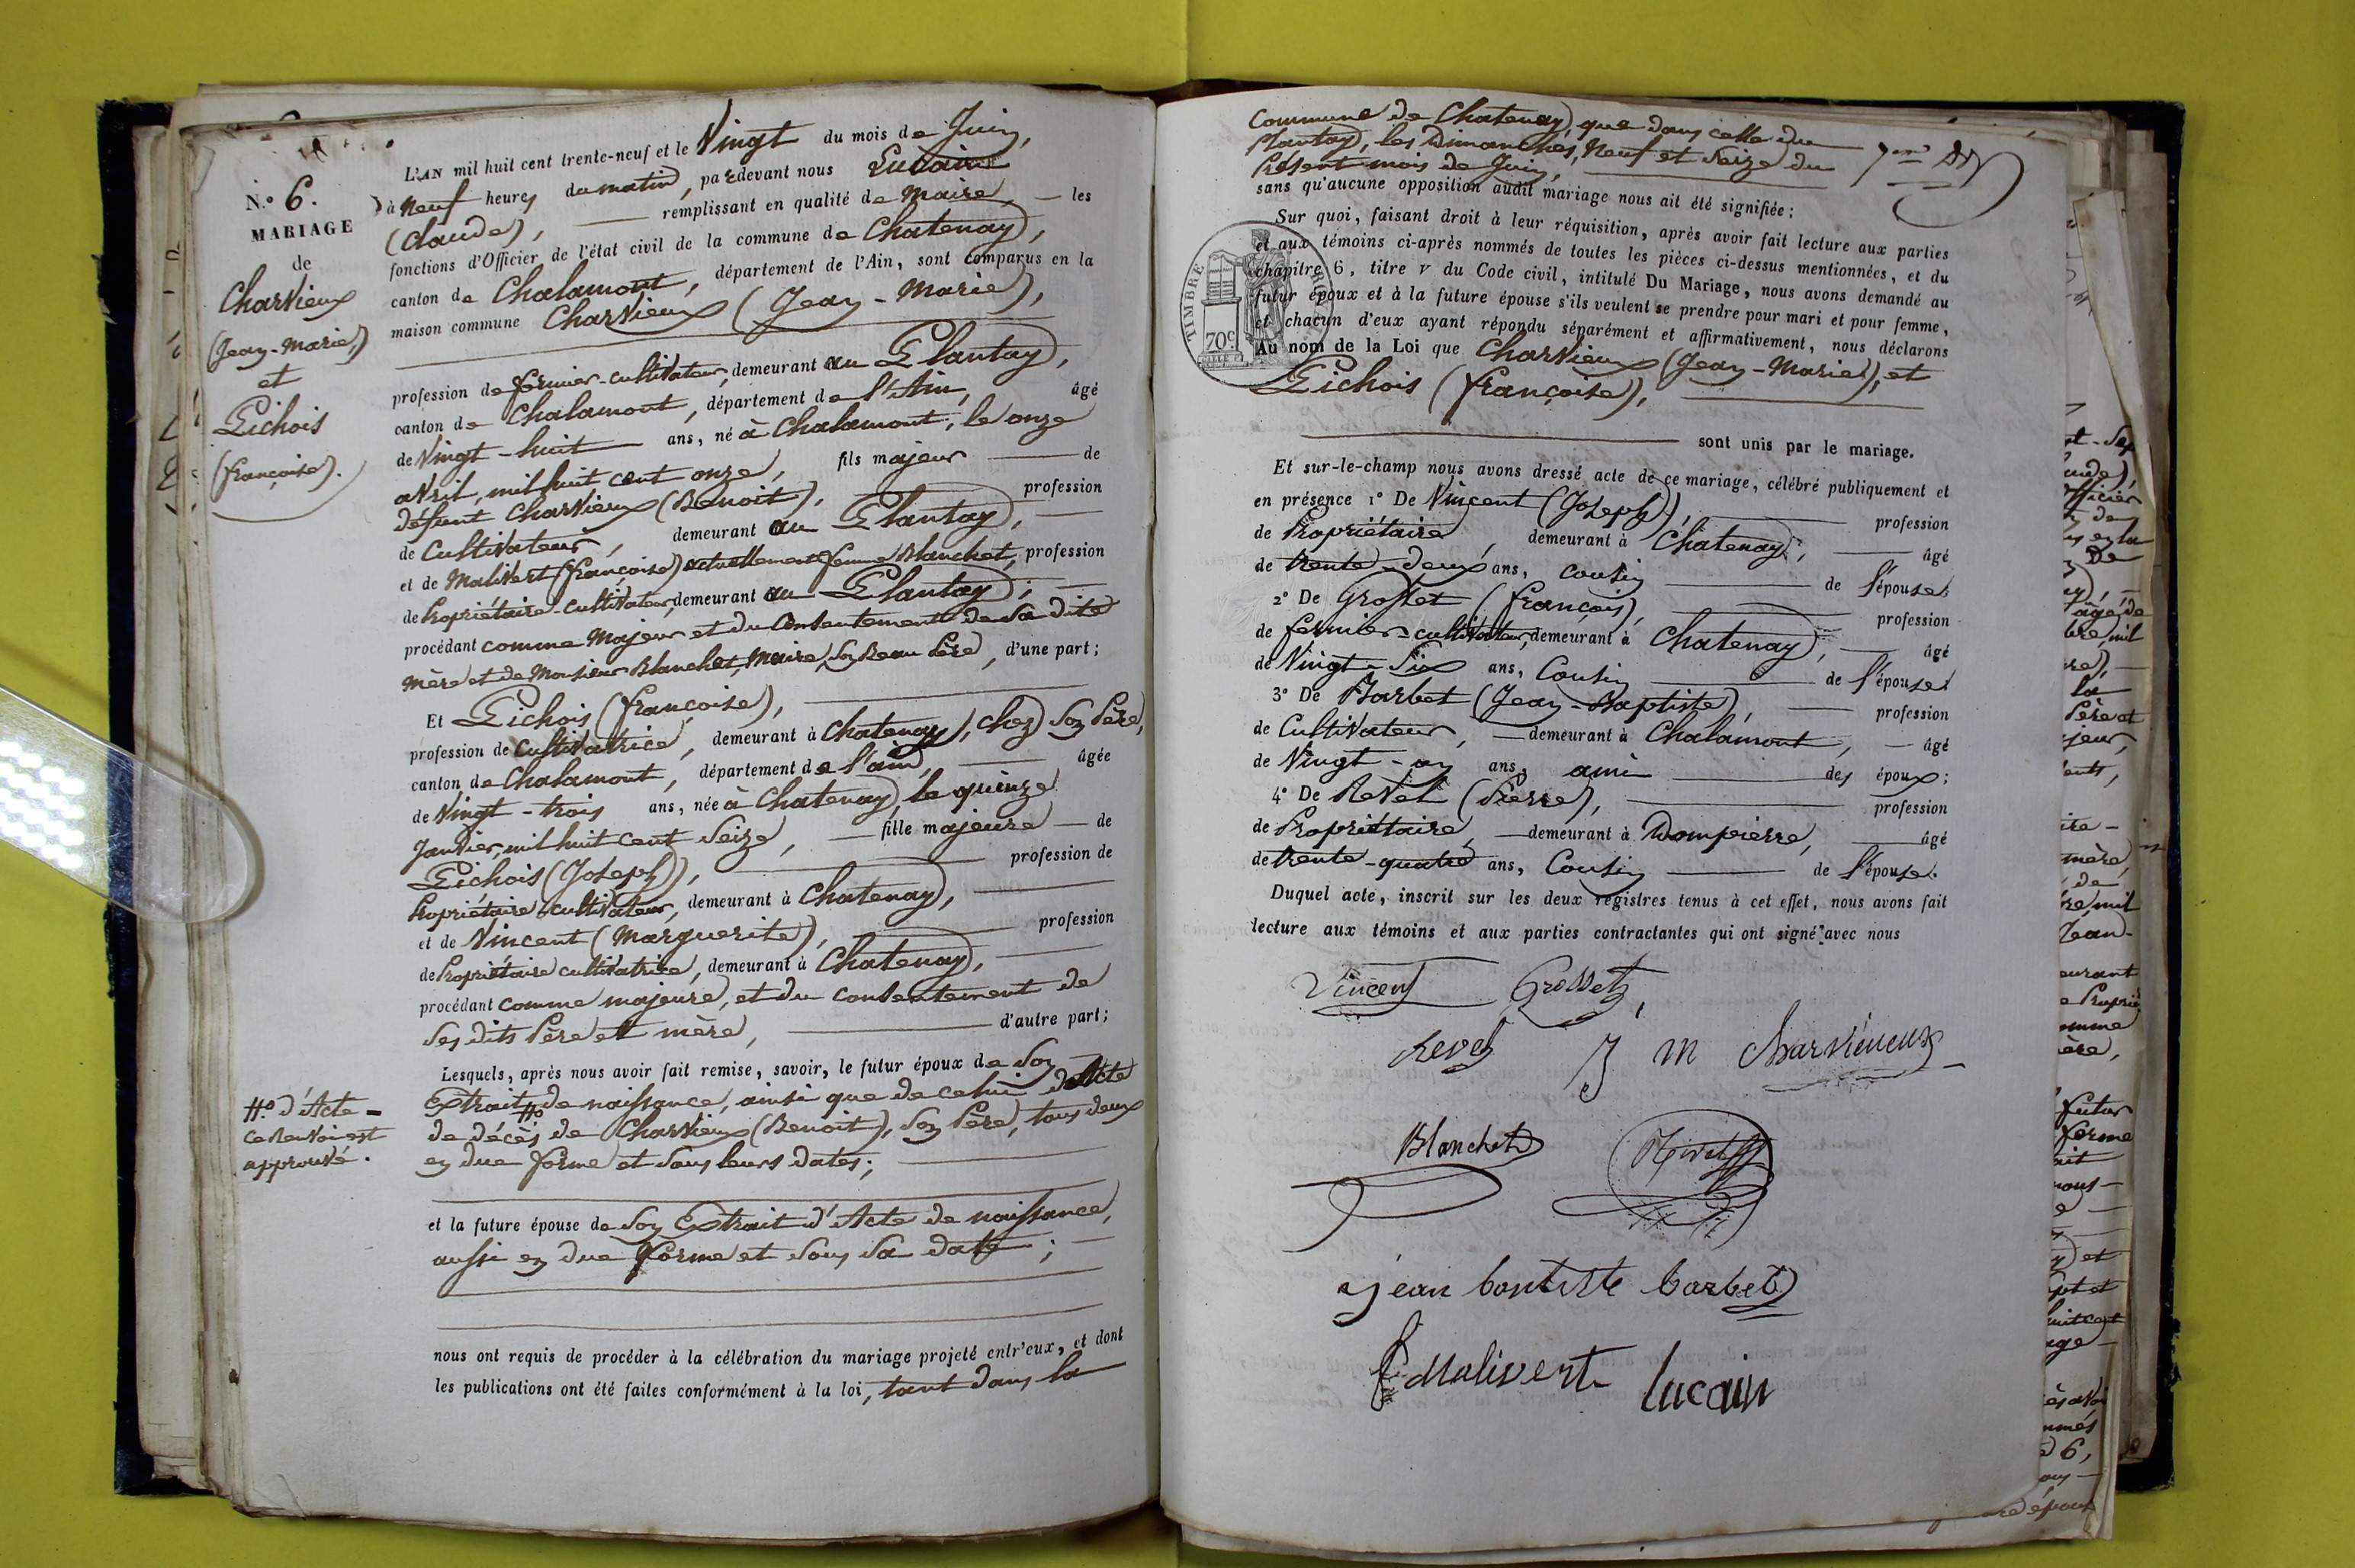 N.° 6.
MARIAGE
de
Charvieux
(Jean-Marie,)
et
Pichois
(françoise).
L'AN mil huit cent trente-neuf et le Vingt du mois de Juin,
à Neuf heures du matin, pardevant nous Lucain
(Claude), remplissant en qualité de Maire, les
fonctions d'Officier de l'état civil de la commune de Chatenay,
canton de Chalamont, département de l'Ain, sont comparus en la
maison commune Charvieux (Jean-Marie),
profession de fermier-cultivateur, demeurant au Plantay,
canton de Chalamont, département de l'Ain, âgé
de Vingt-huit ans, né à Chalamont, le onze
avril, mil huit cent onze, fils majeur de
défunt Charvieux (Benoit), profession
de Cultivateur, demeurant au Plantay,
et de Malivert (françoise) actuellement femme Blanchet, profession
de Propriétaire-cultivateur, demeurant au Plantay;
procédant comme Majeur et du Consentement de Sa dite
Mère et de Monsieur Blanchet, Maire, Son Beau Père, d'une part;
Et Pichois (françoise),
profession de Cultivatrice, demeurant à Chatenay, chez Son Père,
canton de Chalamont, département de l'ain, âgée
de Vingt-trois ans, née à Chatenay le quinze
Janvier, mil huit cent Seize, fille majeure de
Pichois (Joseph), profession de
Propriétaire-cultivateur, demeurant à Chatenay,
et de Vincent (Marguerite), profession
de Propriétaire cultivatrice, demeurant à Chatenay,
procédant comme majeure, et du consentement de
Ses dits Père et mère, d'autre part;
Lesquels, après nous avoir fait remise, savoir, le futur époux de Son
Extrait de naissance, ainsi que de celui d'Acte
de décès de Charvieux (Benoit), Son Père, tous deux
en due forme et Sous leurs dates;
#° d'Acte -
ce Renvoi est
approuvé.
et la future épouse de Son Extrait d'Acte de naissance,
aussi en due forme et Sous Sa date;
nous ont requis de procéder à la célébration du mariage projeté entr'eux, et dont
les publications ont été faites conformément à la loi, tant dans la
Commune de Chatenay, que dans celle du
Plantay, les Dimanches, Neuf et Seize du
Présent mois de Juin,
sans qu'aucune opposition audit mariage nous ait été signifiée;
Sur quoi, faisant droit à leur réquisition, après avoir fait lecture aux parties
et aux témoins ci-après nommés de toutes les pièces ci-dessus mentionnées, et du
chapitre 6, titre v du Code civil, intitulé Du Mariage, nous avons demandé au
futur époux et à la future épouse s'ils veulent se prendre pour mari et pour femme,
et chacun d'eux ayant répondu séparément et affirmativement, nous déclarons
Au nom de la Loi que Charvieux (Jean-Marie), et
Pichois (françoise),
TIMBRE
70c
sont unis par le mariage.
Et sur-le-champ nous avons dressé acte de ce mariage, célébré publiquement et
en présence 1° De Vincent (Joseph), profession
de Propriétaire, demeurant à Chatenay, âgé
de trente-deux ans, Cousin de l'épouse;
2° De Grosset (françois), profession
de fermier-cultivateur, demeurant à Chatenay, âgé
de Vingt-Six ans, Cousin de l'épouse
3° De Barbet (Jean-Baptiste), profession
de Cultivateur, demeurant à Chalamont, âgé
de Vingt-un ans, ami des époux;
4° De Revel (Pierre), profession
de Propriétaire, demeurant à Dompierre, âgé
de trente-quatre ans, Cousin de l'épouse.
Duquel acte, inscrit sur les deux registres tenus à cet effet, nous avons fait
lecture aux témoins et aux parties contractantes qui ont signé avec nous
Vincent Grosset
Revel J M Charviéueux
Blanchet
jean bautiste barbet
Malivert Lucain